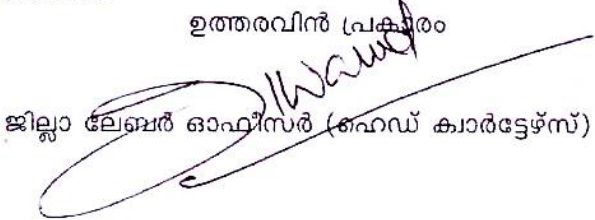 ഉത്തരവിൻ പ്രകാരം
ജില്ലാ ലേബർ ഓഫീസർ (ഹെഡ് ക്വാർട്ടേഴ്സ്)